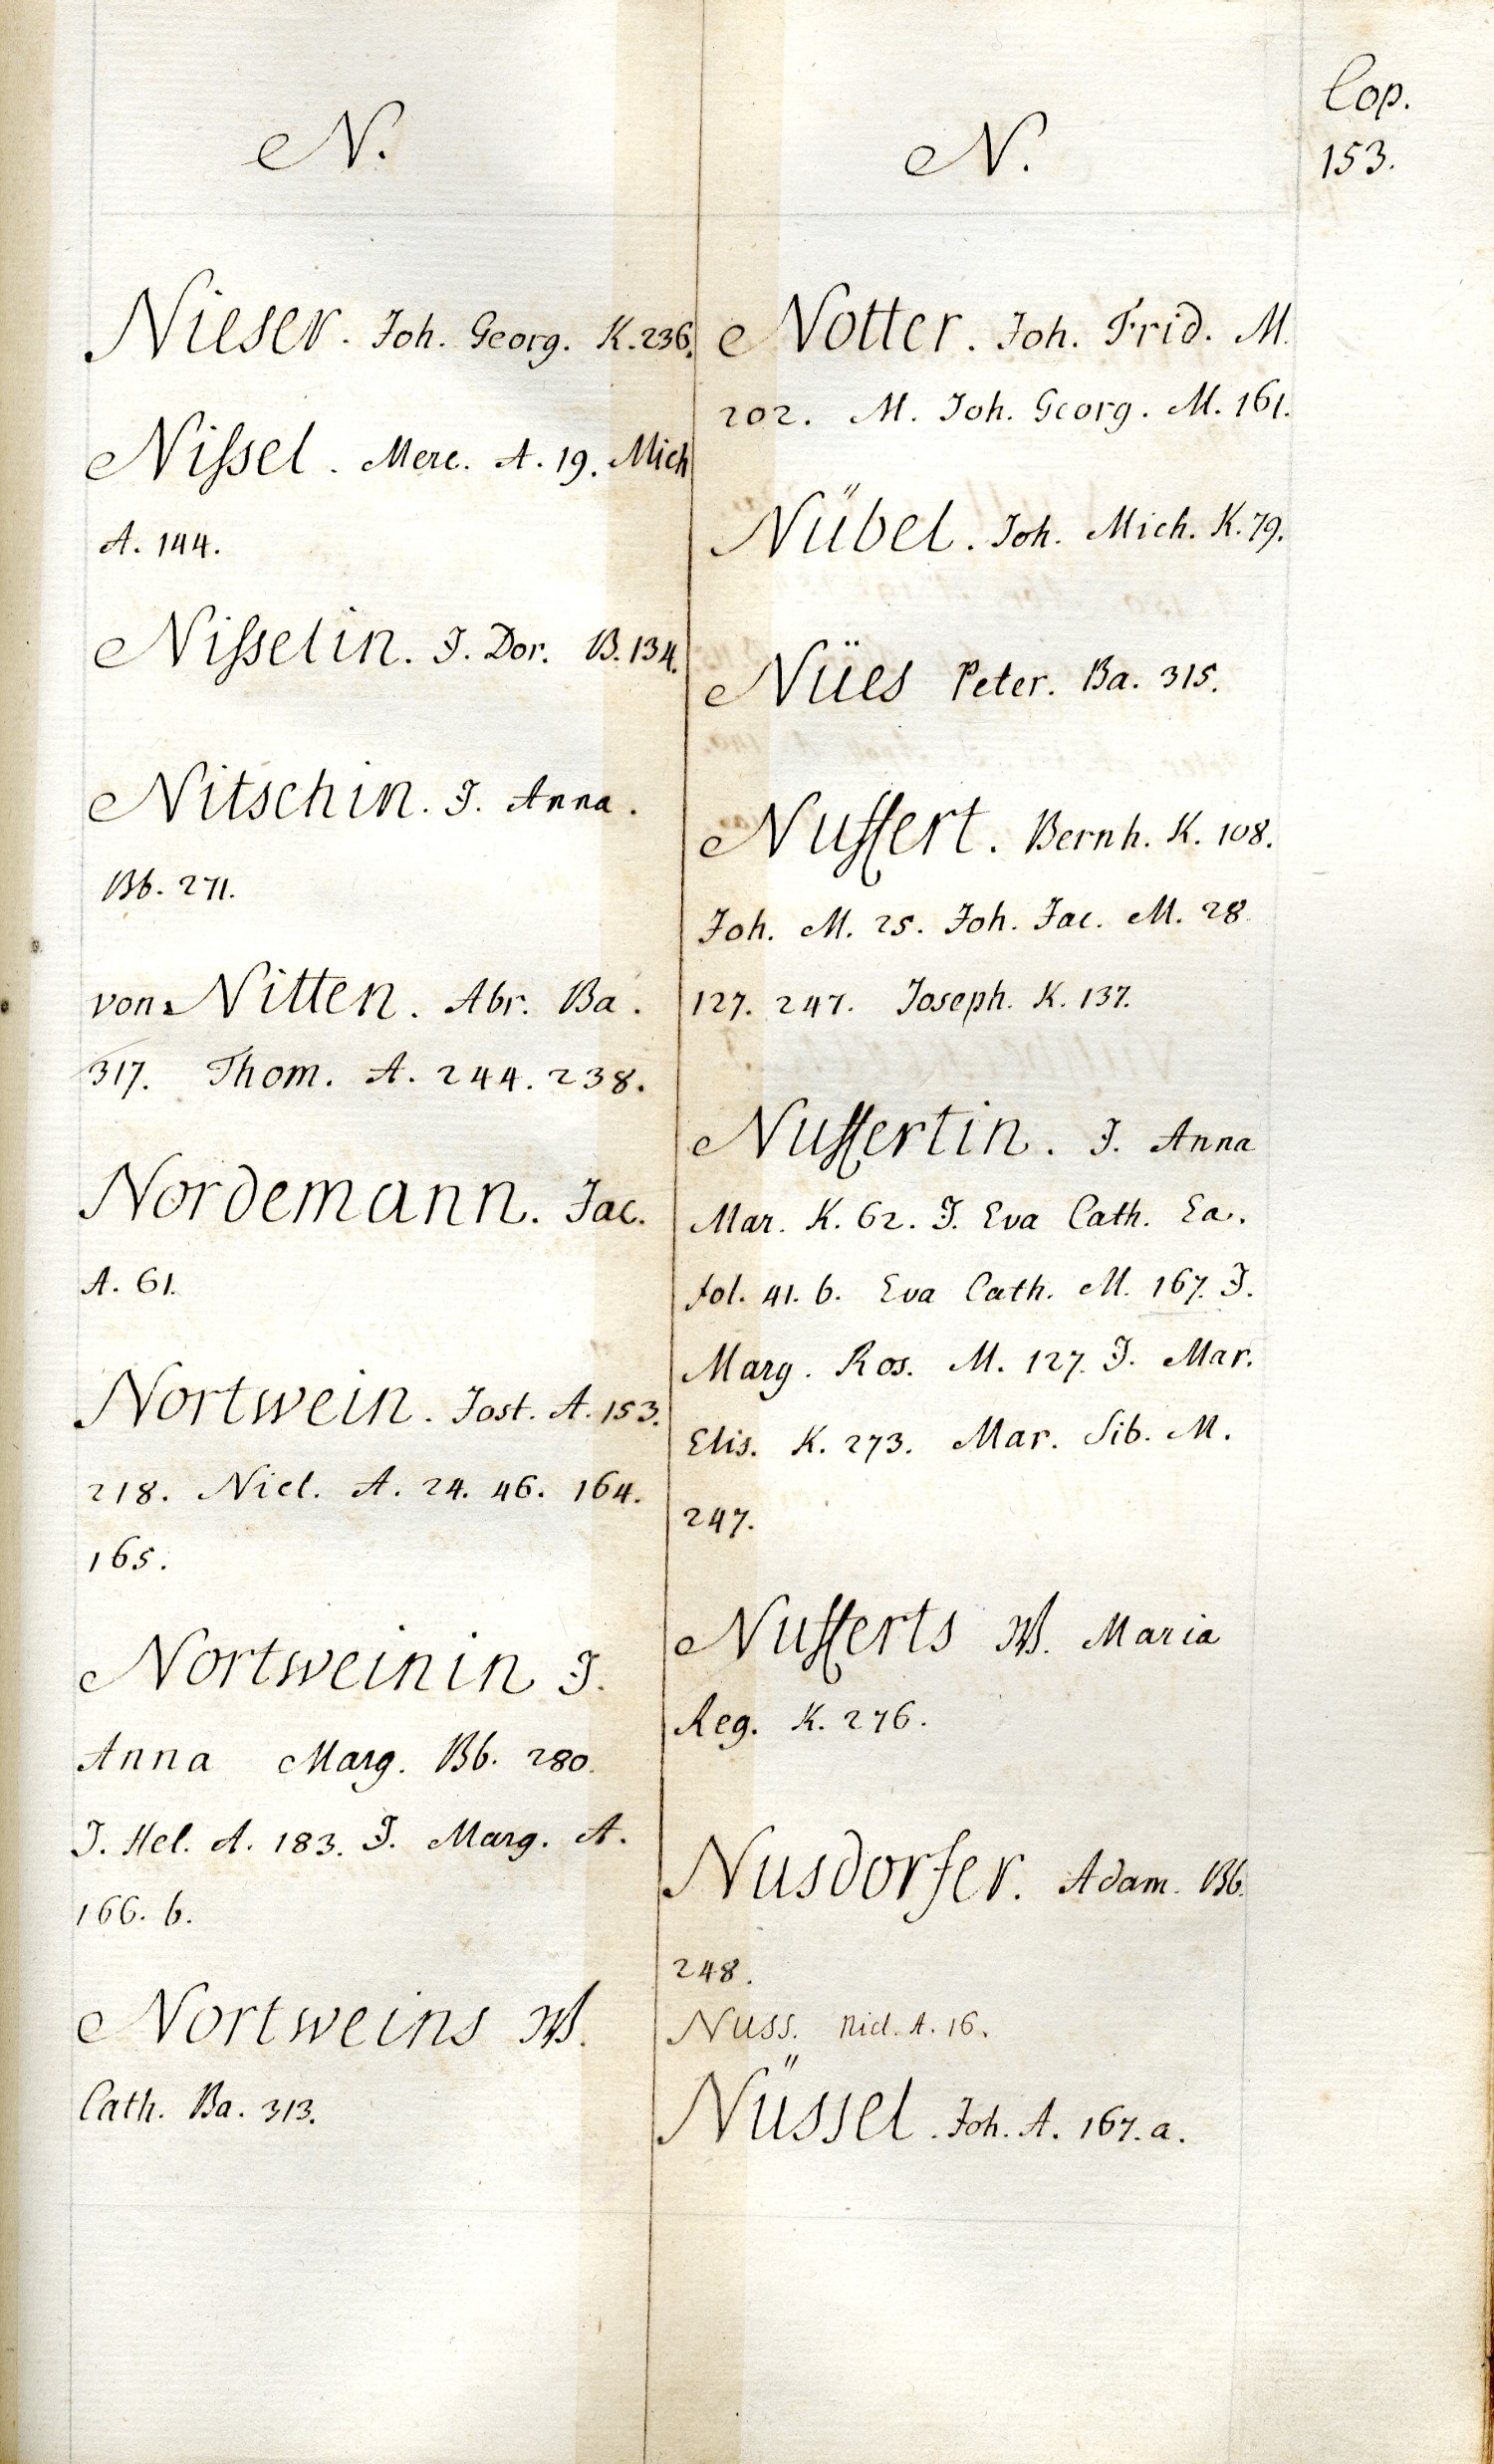 Cop.
153.
N.
Nieser. Joh. Georg. K. 236.
Niſsel. Merc. A. 19. Mich
A. 144.
Niſselin. J. Dor. B. 134.
Nitschin. J. Anna.
Bb. 271.
von Nitten. Abr. Ba.
317. Thom. A. 244. 238.
Nordemann. Jac.
A. 61.
Nortwein. Jost. A. 153.
218. Nicl. A. 24. 46. 164.
165.
Nortweinin J.
Anna Marg. Bb. 280.
J. Hel. A. 183. J. Marg. A.
166. b.
Nortweins W.
Cath. Ba. 313.
N.
Notter. Joh. Frid. M.
202. M. Joh. Georg. M. 161.
Nübel. Joh. Mich. K. 79.
Nües Peter. Ba. 315.
Nuſſert. Bernh. K. 108.
Joh. M. 25. Joh. Jac. M. 28
127. 247. Joseph. K. 137.
Nuſſertin. J. Anna
Mar. K. 62. J. Eva Cath. Ea.
fol. 41. b. Eva Cath. M. 167. J.
Marg. Ros. M. 127. J. Mar.
Elis. K. 273. Mar. Sib. M.
247.
Nuſſerts W. Maria
Reg. K. 276.
Nusdorfer. Adam. Bb.
248.
Nuss. Nicl. A. 16.
Nüssel. Joh. A. 167. a.